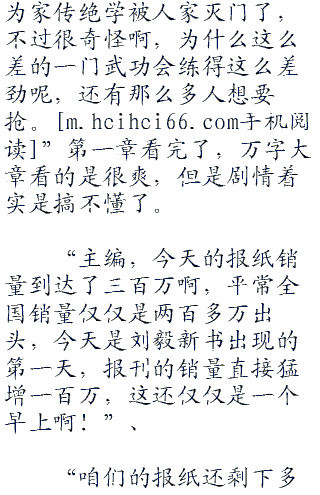 为家传绝学被人家灭门了，
不过很奇怪啊，为什么这么
差的一门武功会练得这么差
劲呢，还有那么多人想要
抢。[m.hcihci66.com手机阅
读]”第一章看完了，万字大
章看的是很爽，但是剧情着
实是搞不懂了。
“主编，今天的报纸销
量到达了三百万啊，平常全
国销量仅仅是两百多万出
头，今天是刘毅新书出现的
第一天，报刊的销量直接猛
增一百万，这还仅仅是一个
早上啊！”、
“咱们的报纸还剩下多